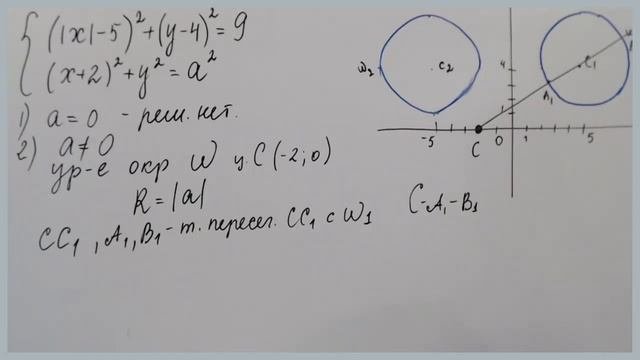 (|x|-5)² + (y-4)² = 9
(x+2)² + y² = a²
1) a = 0 - реш. нет.
2) a ≠ 0
ур-е окр W ц. C (-2; 0)
R = |a|
CC₁, A₁, B₁ - т. пересеч. CC₁ с W₁
C-A₁-B₁
W₂
C₂
C₁
A₁
4
1
-5
C
0
1
5